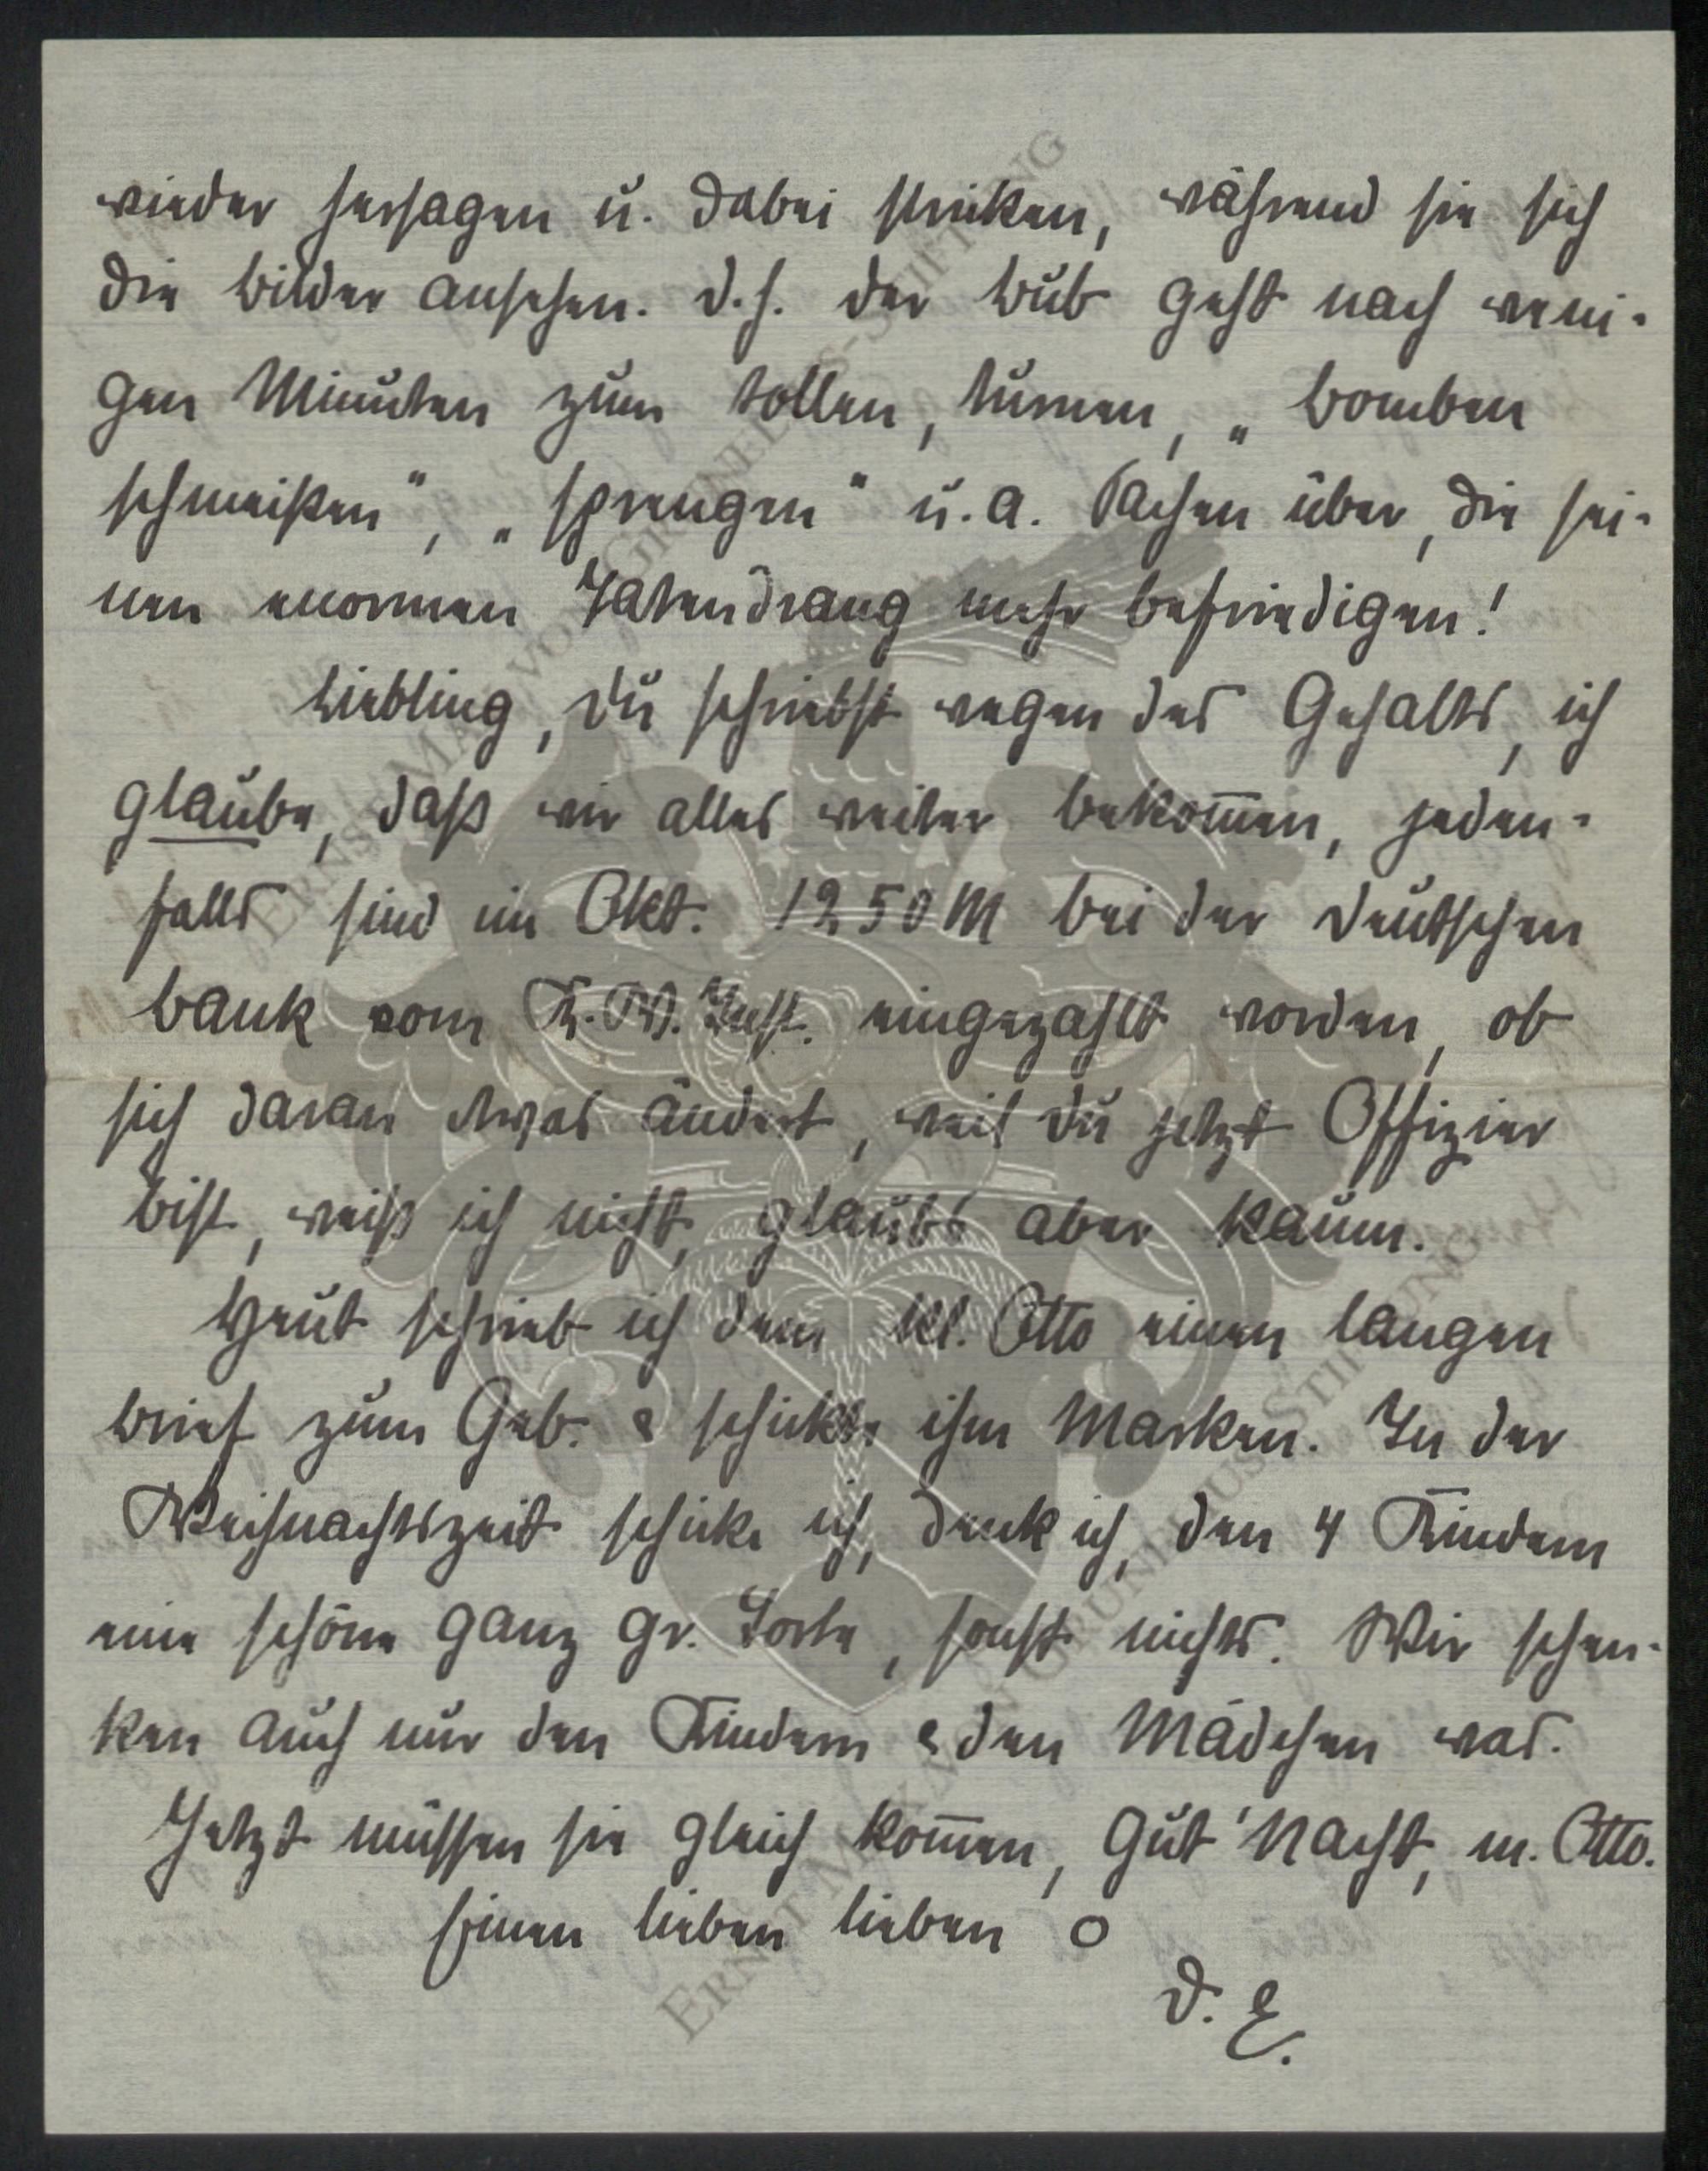 wieder hersagen u. dabei stricken, während sie sich
die Bilder ansehen. D.h. der Bub geht nach weni-
gen Minuten zum tollen, turnen, „Bomben
schmeißen", „sprengen" u. a. Sachen über, die sei-
nen enormen Tatendrang mehr befriedigen!
Liebling, Du schriebst wegen des Gehalts, ich
glaube, daß wir alles weiter bekom̅en, jeden-
falls sind im Okt. 1250 M bei der Deutschen
Bank vom K.W. Inst. eingezahlt worden, ob
sich daran etwas ändert, weil Du jetzt Offizier
bist, weiß ich nicht, glaubs aber kaum.
Heut schrieb ich dem kl. Otto einen langen
Brief zum Geb. & schickte ihm Marken. In der
Weihnachtszeit schicke ich, denk ich, den 4 Kindern
eine schöne ganz gr. Torte, sonst nichts. Wir schen-
ken auch nur den Kindern & den Mädchen was.
Jetzt müssen sie gleich kom̅en, Gut' Nacht, m. Otto.
Einen lieben lieben o
D. E.
ERNST MAX VON GRUNELIUS-STIFTUNG
ERNST MAX VON GRUNELIUS-STIFTUNG